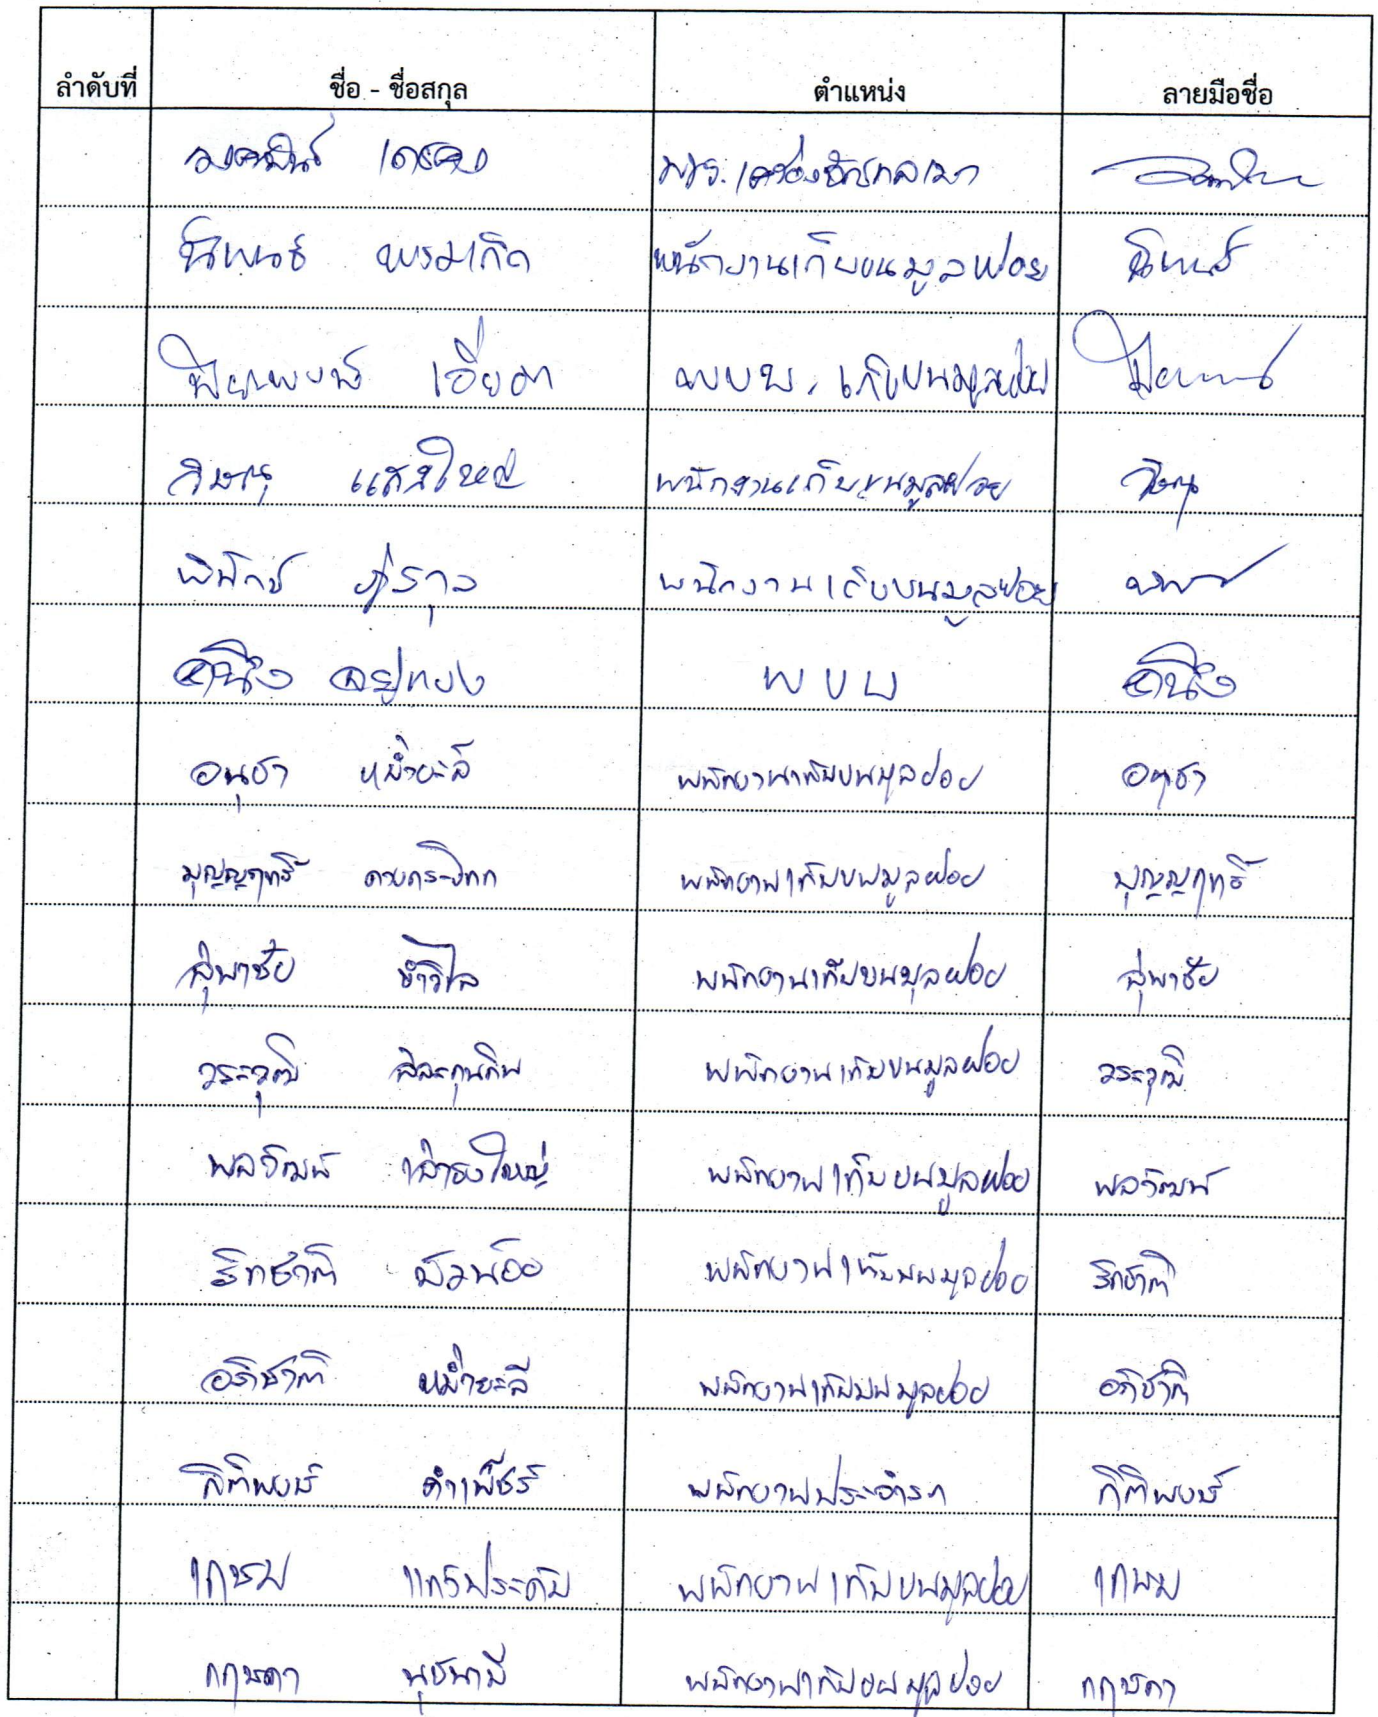 ลำดับที่ ชื่อ - ชื่อสกุล ตำแหน่ง ลายมือชื่อ
พขร. เครื่องจักรกลเบา
นิพนธ์ พรมเกิด พนักงานเก็บขนมูลฝอย นิพนธ์
ปิยะพงษ์ เอี่ยมา เก็บขนมูลฝอย
วิษณุ แสงใหญ่ พนักงานเก็บขนมูลฝอย วิษณุ
พิทักษ์ พนักงานเก็บขนมูลฝอย
คนึง อยู่ทอง พ ข บ คนึง
อนุชา หม่ำยะลี พนักงานเก็บขนมูลฝอย อนุชา
บุญญฤทธิ์ พนักงานเก็บขนมูลฝอย บุญญฤทธิ์
สุพาชัย ขำวิไล พนักงานเก็บขนมูลฝอย สุพาชัย
วรวุฒิ พนักงานเก็บขนมูลฝอย วรวุฒิ
พลวัฒน์ พนักงานเก็บขนมูลฝอย พลวัฒน์
บัวน้อย พนักงานเก็บขนมูลฝอย
อภิชาติ หม่ำยะลี พนักงานเก็บขนมูลฝอย อภิชาติ
กิติพงษ์ คำเพ็ชร์ พนักงานประจำรถ กิติพงษ์
เกษม แก้วประดับ พนักงานเก็บขนมูลฝอย เกษม
กฤษดา นุชนามี พนักงานเก็บขนมูลฝอย กฤษดา